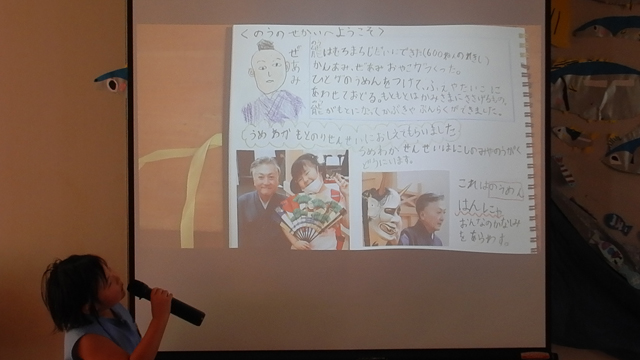 <のうのせかいへようこそ>
ぜあみ
能はむろまちじだいにできた(600年の れきし)
かんあみ、ぜあみ おやこがつくった。
ひとがのうめんをつけて、ふえやたいこに
あわせておどる。もともとはかみさまにささげるもので
能がもとになってかぶきや ぶんらくができました。
うめわか もとのりせんせいにおしえてもらいました
うめわか せんせいはにしのみやのうがく
どうにいます。
これはのうめん
はんにゃ
おんなのかなしみ
をあらわす。